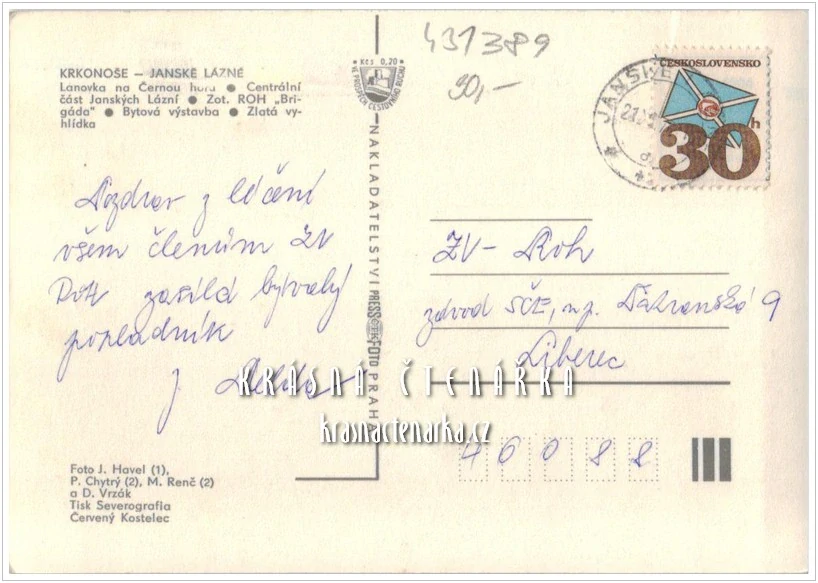 431389
90,–
KRKONOŠE – JANSKÉ LÁZNĚ
Lanovka na Černou horu ● Centrální
část Janských Lázní ● Zot. ROH „Bri-
gáda" ● Bytová výstavba ● Zlatá vy-
hlídka
Kčs 0,20
VE PROSPĚCH CESTOVNÍHO RUCHU
NAKLADATELSTVÍ PRESSFOTO PRAHA
ČESKOSLOVENSKO
30h
JANSKÉ
Pozdrav z léčení
všem členům ZV
ROH zasílá bývalý
pokladník
J.
ZV - Roh
závod SČE, n.p. 9
Liberec
46088
KRÁSNÁ ČTENÁRKA
krasnactenarka.cz
Foto J. Havel (1),
P. Chytrý (2), M. Renč (2)
a D. Vrzák
Tisk Severografia
Červený Kostelec